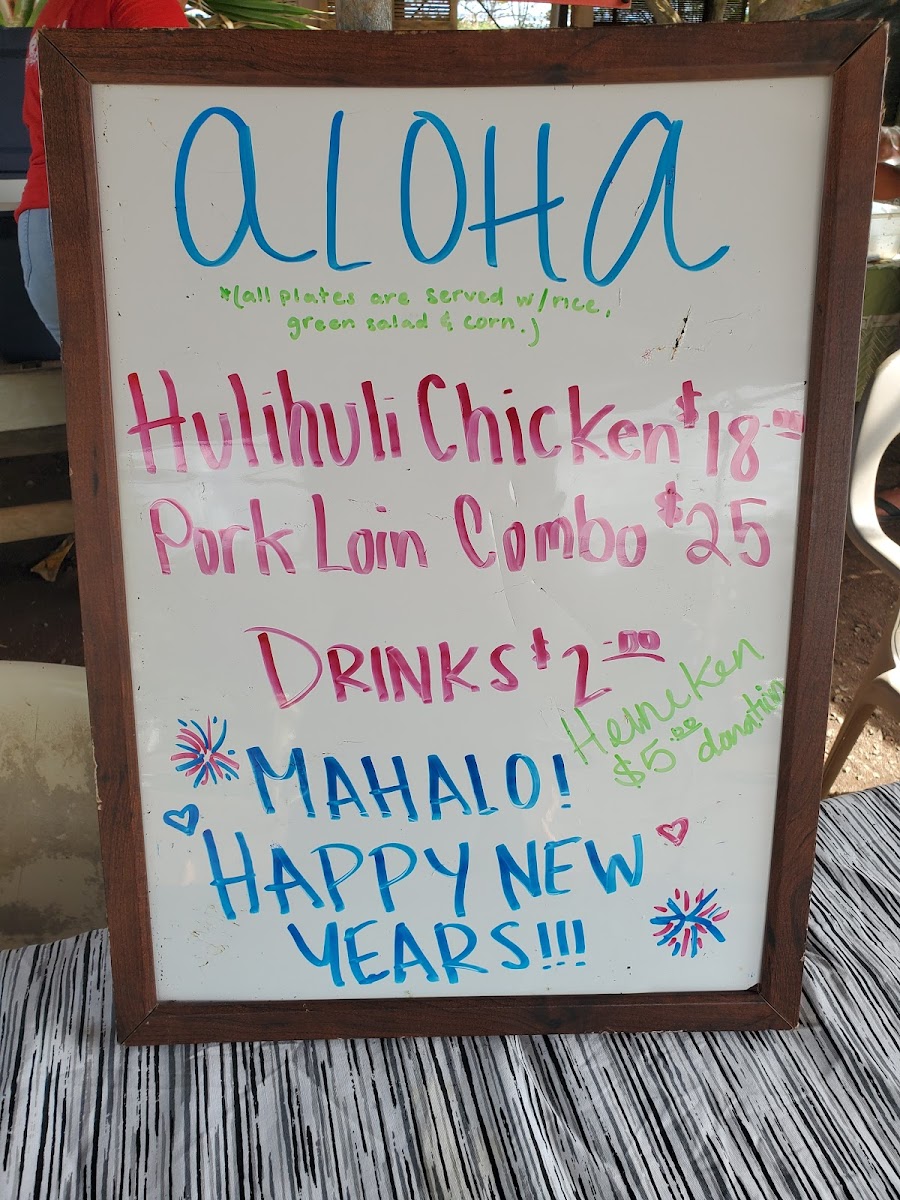 ALOHA
*(all plates are served w/rice,
green salad & corn.)
Hulihuli Chicken $18.00
Pork Loin Combo $25
DRINKS $2.00
Heineken
$5.00 donation
MAHALO!
HAPPY NEW
YEARS!!!